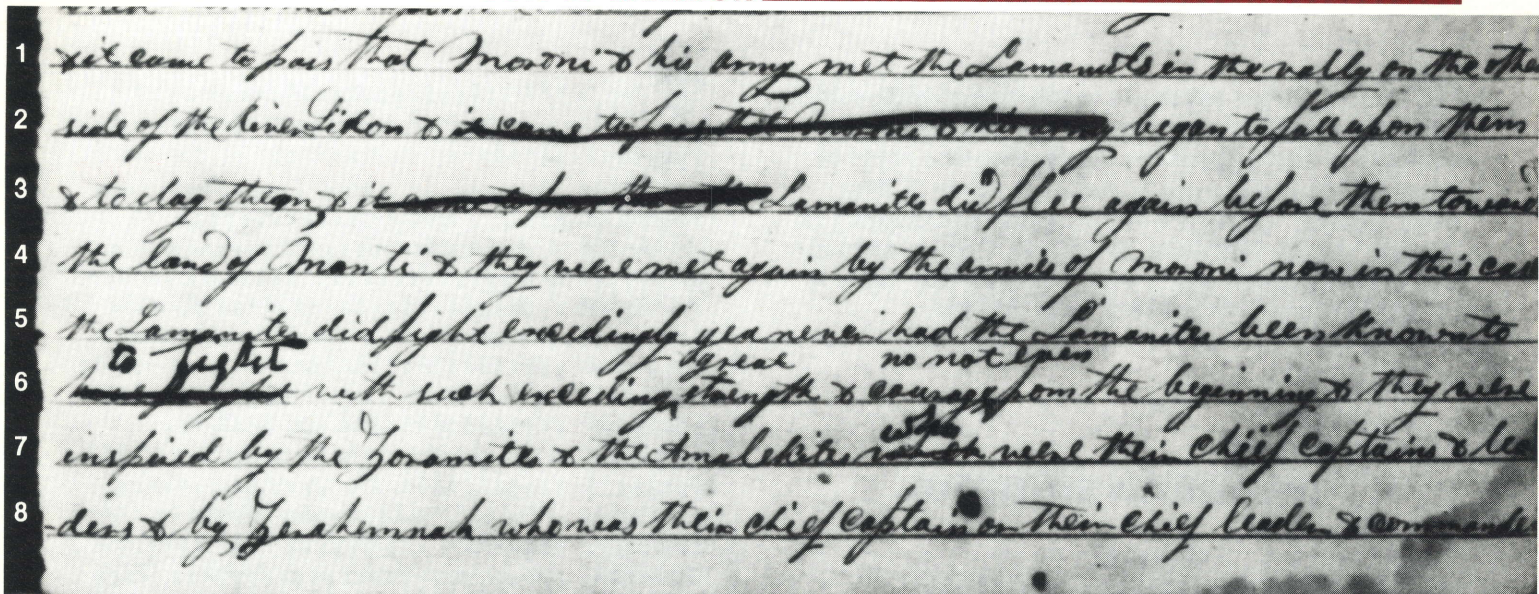 1 & it came to pass that Moroni & his army met the Lamanites in the vally on the othe
2 side of the River Sidon & it came to pass that Moroni & his army began to fall upon them
3 & to slay them & it came to pass that the Lamanites did flee again before them toward
4 the land of Manti & they were met again by the armies of Moroni now in this cas
5 the Lamanites did fight exceedingly yea never had the Lamanites been known to
to fight great no not even
6 have fought with such exceding strength & courage from the beginning & they were
who
7 inspired by the Zoramites & the Amalekites which were their chief captains & lea
8 -ders & by Zerahemnah who was their chief captain or their chief leader & commande